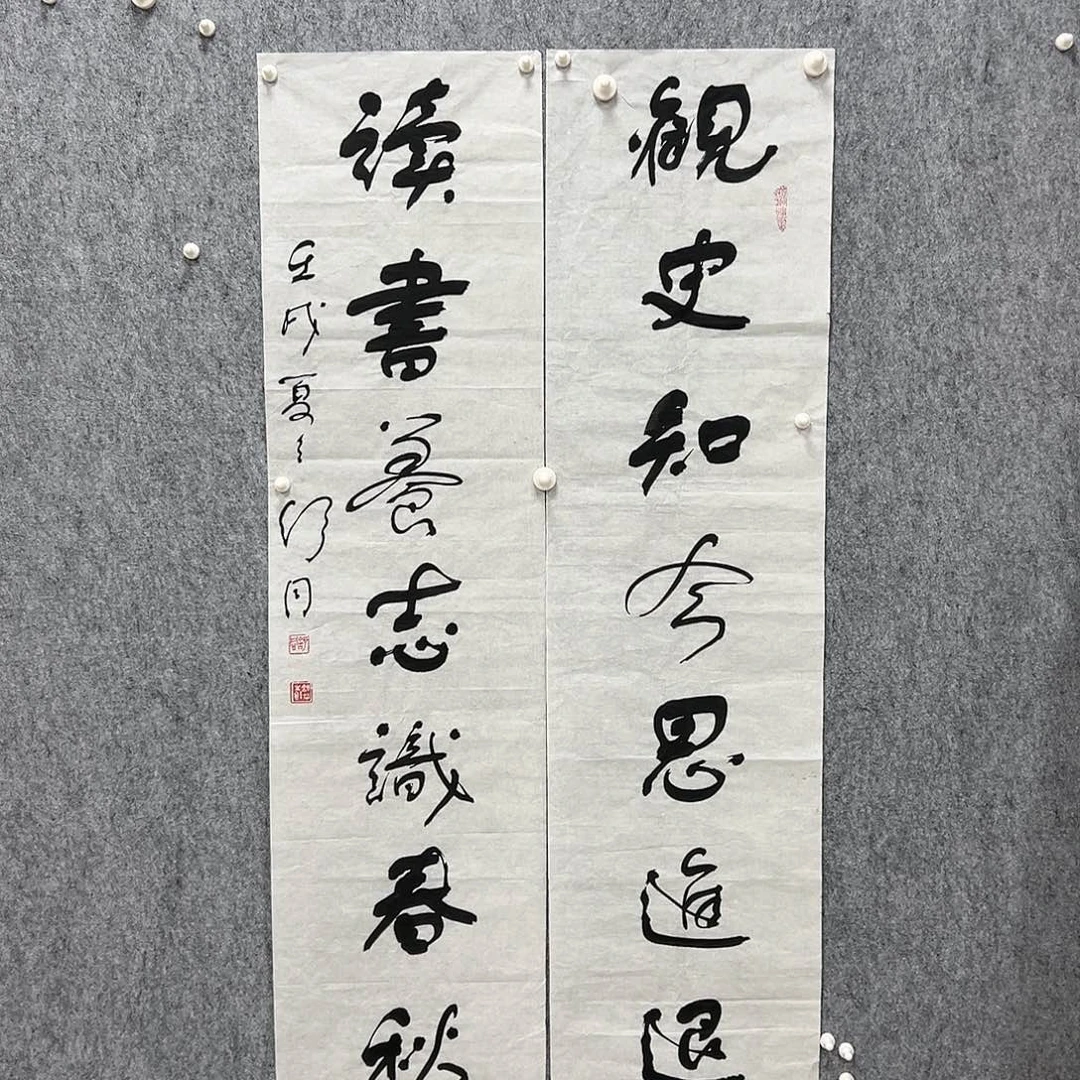 觀史知今思進退
讀書養志識春秋
壬戌夏之
舒同